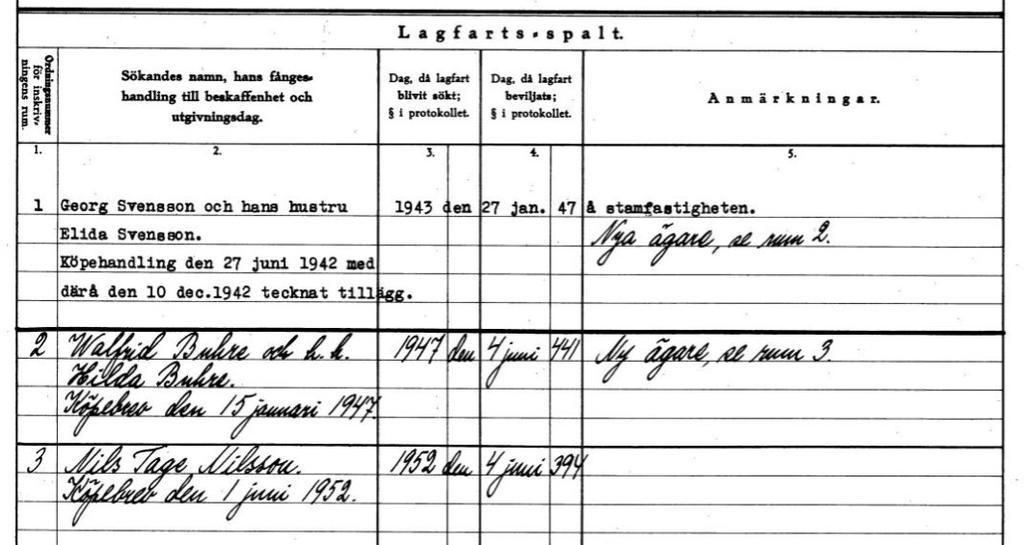 Lagfarts-spalt.
Ordningsnummer för inskrivningens rum.
Sökandes namn, hans fånges-
handling till beskaffenhet och
utgivningsdag.
Dag, då lagfart
blivit sökt;
§ i protokollet.
Dag, då lagfart
beviljats;
§ i protokollet.
Anmärkningar.
1. 2. 3. 4. 5.
1 Georg Svensson och hans hustru 1943 den 27 jan. 47 Å stamfastigheten.
Elida Svensson. Nya ägare, se rum 2.
Köpehandling den 27 juni 1942 med
därå den 10 dec.1942 tecknat tillägg.
2 Walfrid Buhre och h. h. 1947 den 4 juni 441 Ny ägare, se rum 3.
Hilda Buhre.
Köpebrev den 15 januari 1947.
3 Nils Tage Nilsson. 1952 den 4 juni 394
Köpebrev den 1 juni 1952.